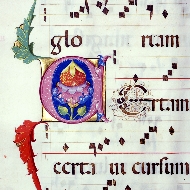 glo riam
Certam
certa ui cursum